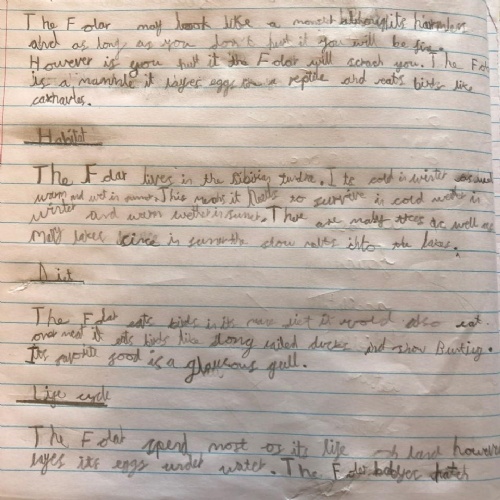 The Fdar may look like a monster although its harmless
and as long as you don't hurt it you will be fine.
However is you hurt it the Fdar will scrach you. The Fdar
is a mammle it layes eggs like a reptile and eats birds like
Habitat
The Fdar lives in the Sibirian tundra. It is cold in winter
warm and wet in summer. This means it Needs to survive in cold wether in
winter and warm wether in summer. There are many trees as well as
many lakes since in summer the snow melts into the lakes.
Diet
The Fdar eats birds in its main diet it would also eat
over meat it eats birds like long tailed ducks and snow Bunting.
Its favorite food is a glaucous gull.
Life cycle
The Fdar spend most os its life on land however
layes its eggs under water. The Fdar babyes hatch